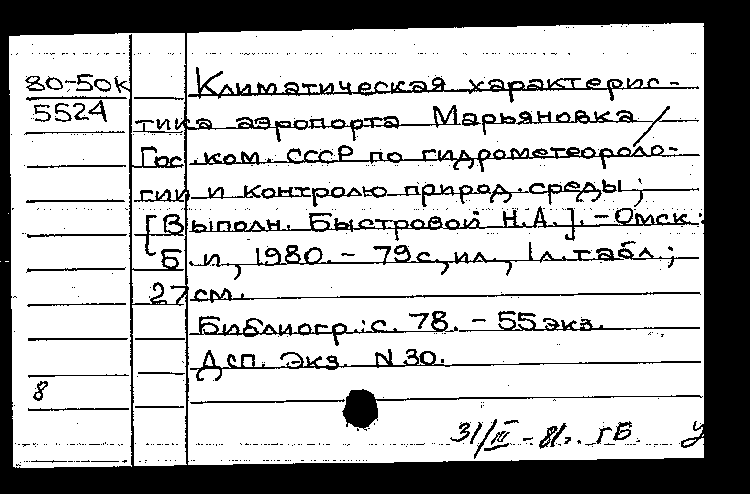 80-50к Климатическая характерис-
5524 тика аэропорта Марьяновка /
Гос. ком. СССР по гидрометеороло-
гии и контролю природ. среды;
[Выполн. Быстровой Н.А.]. - Омск:
Б.и., 1980. - 79с., ил., 1л. табл.;
27 см.
Библиогр.: с. 78. - 55 экз.
Дсп. Экз. N 30.
8
31/III - 81г. ГБ. У